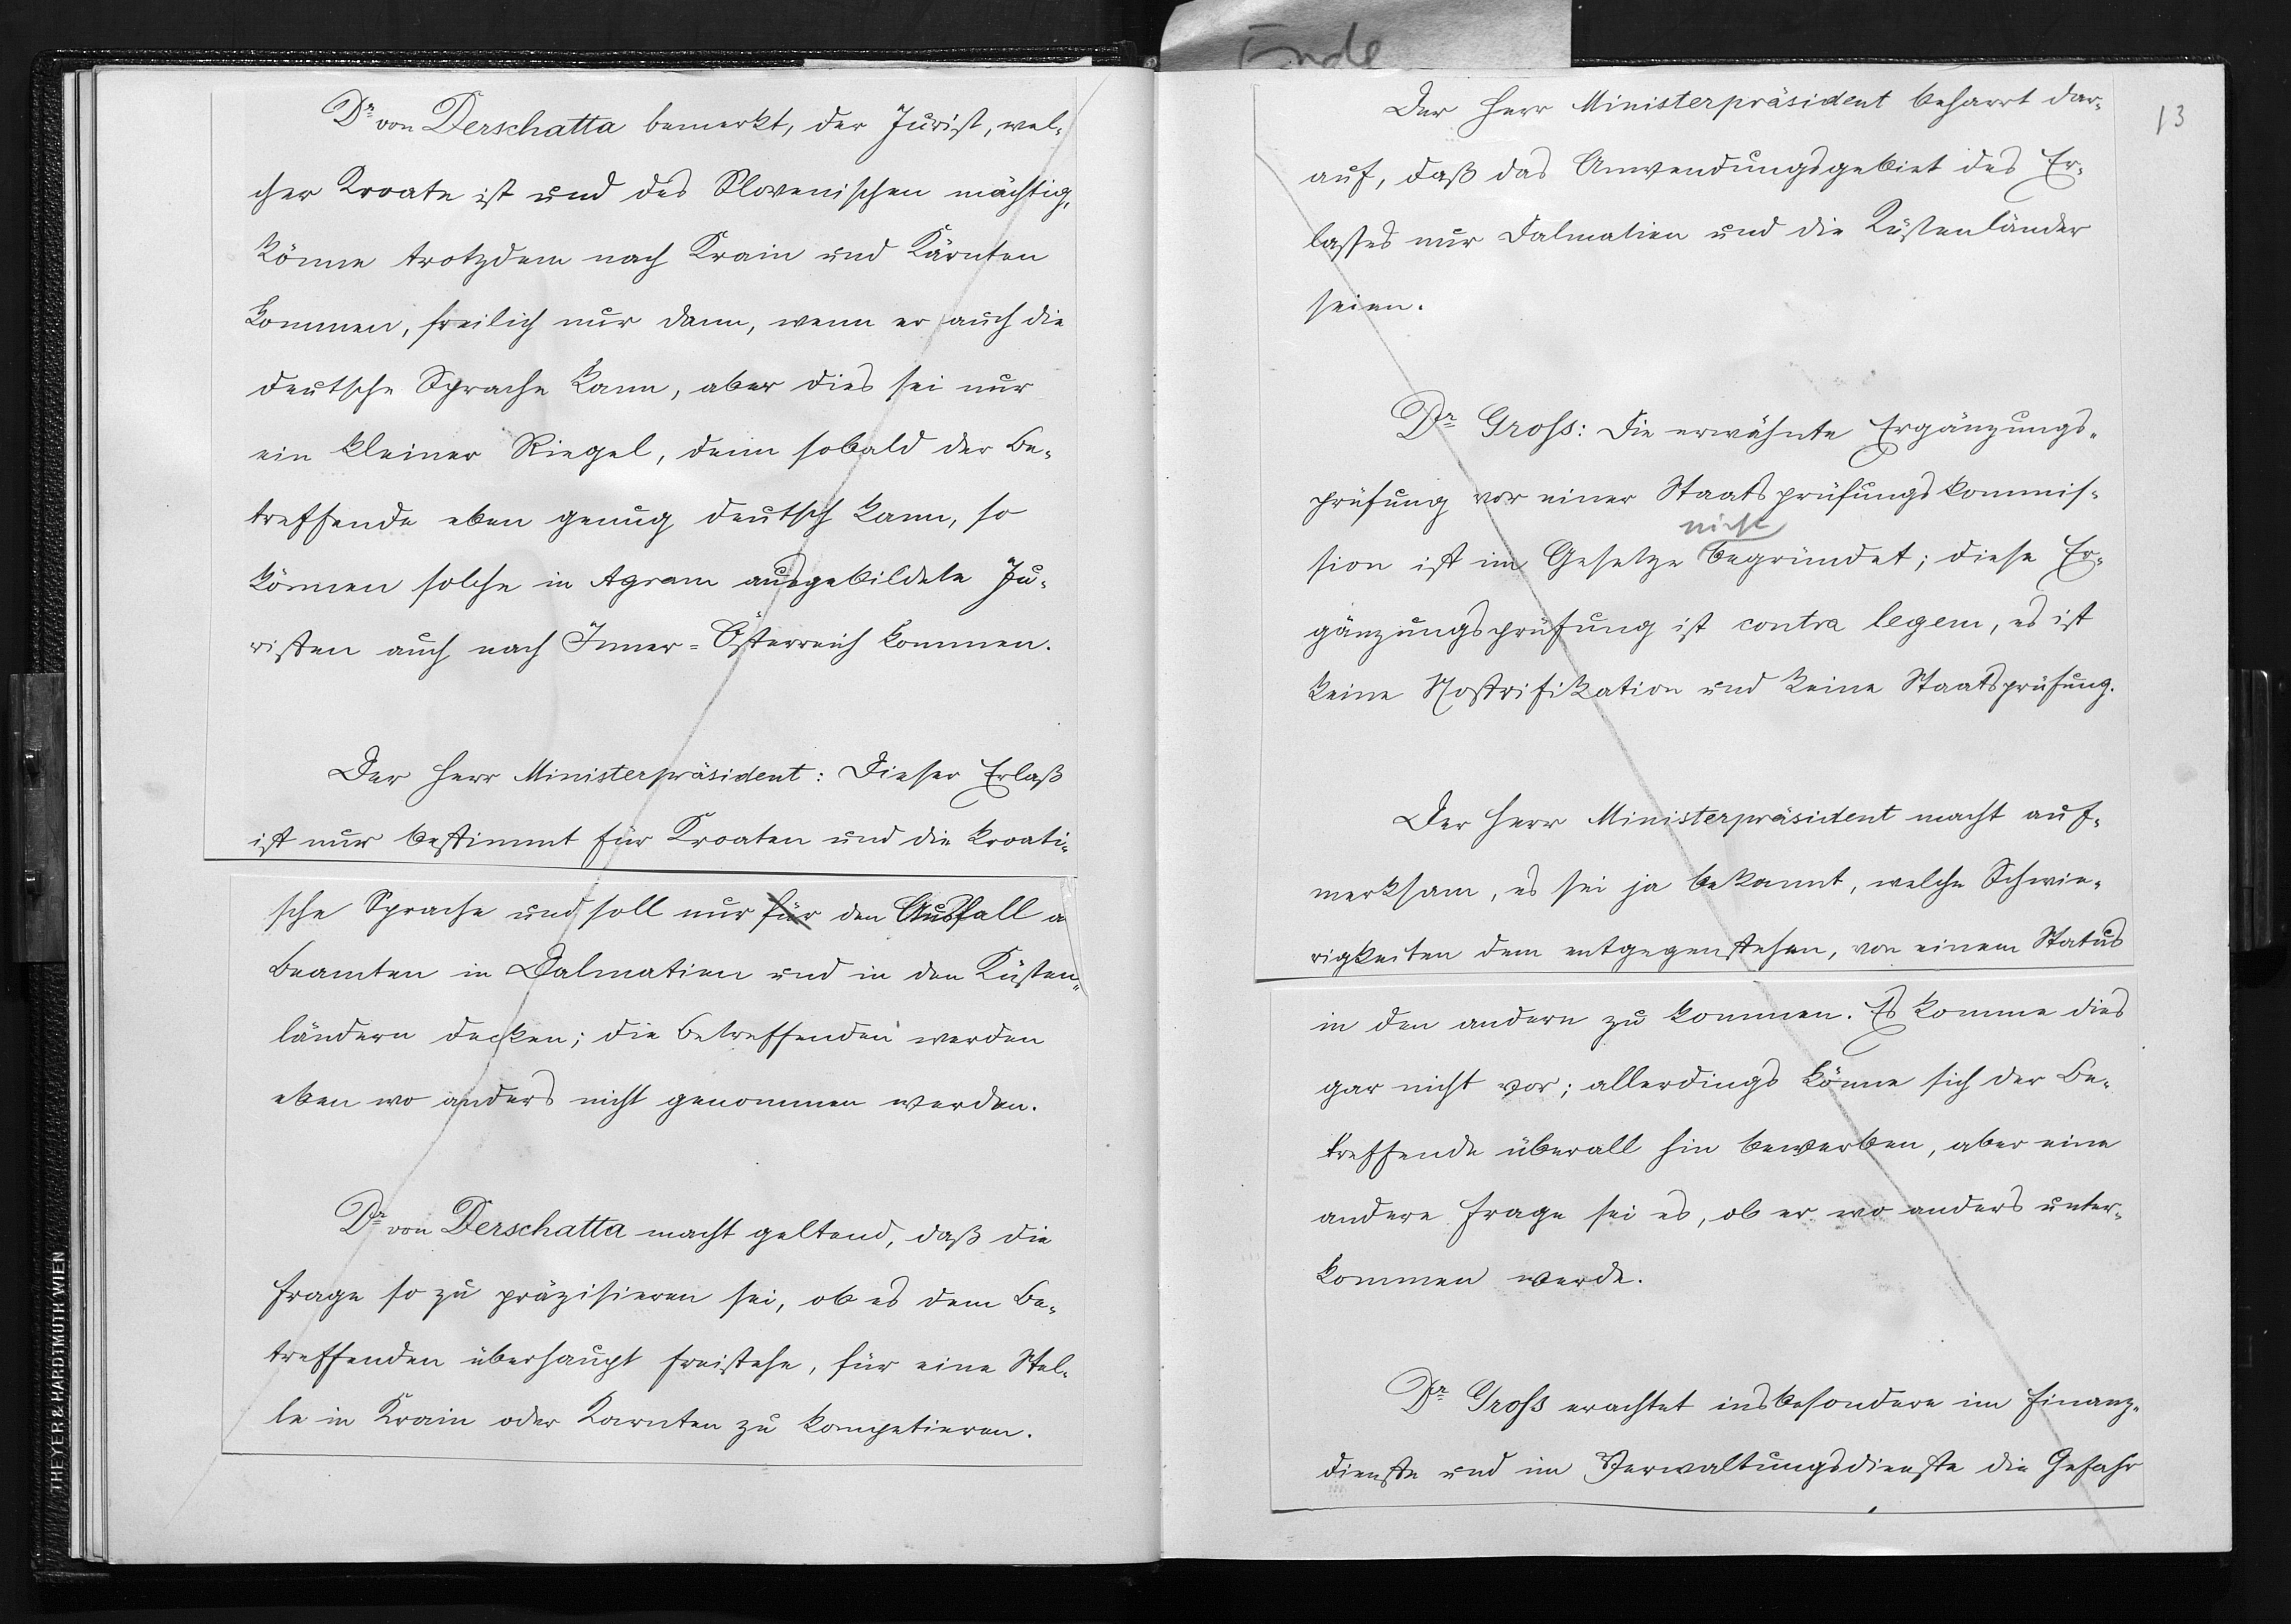 Dr von Derschatta bemerkt, der Jurist, wel-
cher Kroate ist und des Slovenischen mächtig,
könne trotzdem nach Krain und Kärnten
kommen, freilich nur dann, wenn er auch die
deutsche Sprache kann, aber dies sei nur
ein kleiner Riegel, denn sobald der Be-
treffende eben genug deutsch kann, so
können solche in Agram ausgebildete Ju-
risten auch nach Inner-Österreich kommen.
Der Herr Ministerpräsident: Dieser Erlaß
ist nur bestimmt für Kroaten und die kroati-
sche Sprache und soll nur für den Ausfall a
Beamten in Dalmatien und in den Küsten-
ländern decken; die Betreffenden werden
eben wo anders nicht genommen werden.
Dr von Derschatta macht geltend, daß die
Frage so zu präzisieren sei, ob es dem Be-
treffenden überhaupt freistehe, für eine Stel-
le in Krain oder Karnten zu kompetieren.
THEYER & HARDTMUTH WIEN
Ende
13
Der Herr Ministerpräsident beharrt dar-
auf, daß das Anwendungsgebiet des Er-
lasses nur Dalmatien und die Küstenländer
seien.
Dr Gross: Die erwähnte Ergänzungs-
prüfung vor einer Staatsprüfungskommis-
nicht
sion ist im Gesetze begründet; diese Er-
gänzungsprüfung ist contra legem, es ist
keine Nostrifikation und keine Staatsprüfung.
Der Herr Ministerpräsident macht auf-
merksam, es sei ja bekannt, welche Schwie-
rigkeiten dem entgegenstehen, von einem Status
in den andern zu kommen. Es komme dies
gar nicht vor; allerdings könne sich der Be-
treffende überall hin bewerben, aber eine
andere Frage sei es, ob er wo anders unter-
kommen werde.
Dr Gross erachtet insbesondere im Finanz-
dienste und im Verwaltungsdienste die Gefahr